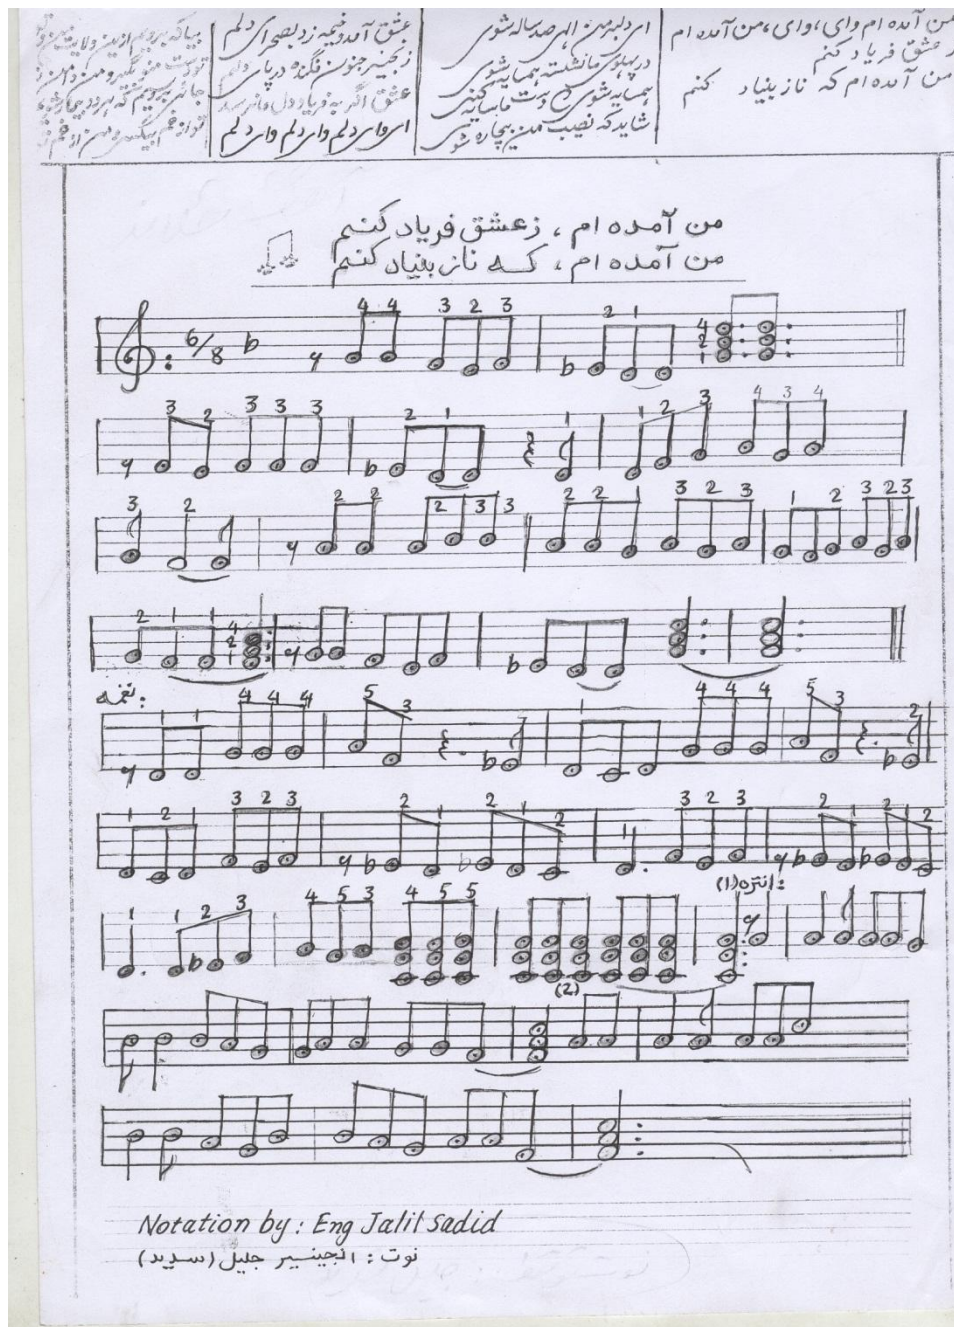 من آمده ام وای، وای، من آمده ام
ز عشق فریاد کنم
من آمده ام که ناز بنیاد کنم
ای دلبر من الهی صد ساله شوی
در پهلوی ما نشسته همسایه شوی
همسایه شوی دست با سایه کنی
شاید که نصیب من بیچاره شوی
عشق آمد و خیمه زد بصحرای دلم
زنجیر جنون فگنده در پای دلم
عشق اگر به فریاد دل ما نرسد
ای وای دلم وای دلم وای دلم
بیا که برویم ازین ولایت من و
تو دست منو بگیر و من دامن
جائی برسیم که هردو بیمار شویم
تو از غم بیکسی و من از غم
من آمده ام ، زعشق فریاد کنم
من آمده ام ، که ناز بنیاد کنم
6/8 4 4 3 2 3 2 1 4 2 1
3 2 3 3 3 2 1 1 1 2 3 4 3 4
3 2 2 2 2 3 3 2 2 1 3 2 3 1 2 3 2 3
2 1 1 4 2 1
نغمه :
1 1 4 4 4 5 3 2 1 4 4 4 5 3 2
1 2 1 3 2 3 2 1 2 1 2 1 3 2 3 2 1 2 1 2
انتره (1) :
1 1 2 3 4 5 3 4 5 5
(2)
Notation by : Eng Jalil Sadid
نوت : انجینیر جلیل (سدید)